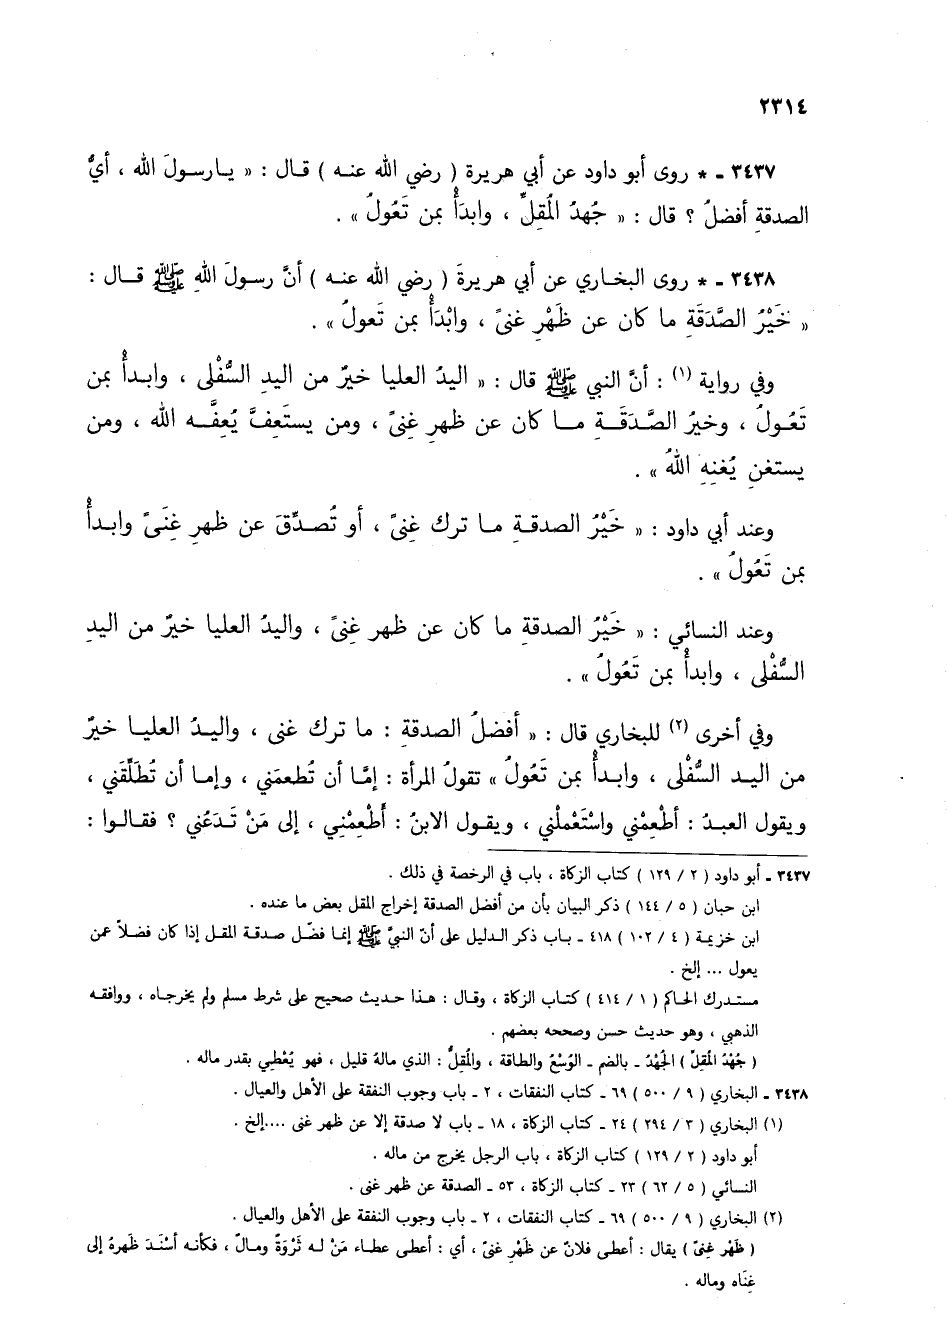 ٢٣١٤
٣٤٣٧ - * روى أبو داود عن أبي هريرة ( رضي الله عنه ) قال : « يارسولَ الله ، أيُّ
الصدقةِ أفضلُ ؟ قال : « جُهدُ المُقِلِّ ، وابدَأُ بمن تَعُولُ » .
٣٤٣٨ - * روى البخاري عن أبي هريرةَ ( رضي الله عنه ) أنَّ رسولَ اللهِ ﷺ قال :
« خَيْرُ الصَّدَقَةِ ما كان عن ظَهْرِ غنىً ، وابْدَأُ بمن تَعولُ » .
وفي رواية (١) : أنَّ النبي ﷺ قال : « اليدُ العليا خيرٌ من اليدِ السُّفْلى ، وابدأُ بمن
تَعُولُ ، وخيرُ الصَّدَقَةِ ما كان عن ظهرِ غِنىً ، ومن يستَعِفَّ يُعِفَّه الله ، ومن
يستغنِ يُغنِهِ اللهُ » .
وعند أبي داود : « خَيْرُ الصدقةِ ما ترك غِنىً ، أو تُصدِّقَ عن ظهرِ غِنَىً وابدأُ
بمن تَعُولُ » .
وعند النسائي : « خَيْرُ الصدقةِ ما كان عن ظهر غِنىً ، واليدُ العليا خيرٌ من اليدِ
السُّفْلى ، وابدأُ بمن تَعُولُ » .
وفي أخرى (٢) للبخاري قال : « أفضلُ الصدقة : ما ترك غنى ، واليدُ العليا خيرٌ
من اليد السُّفْلى ، وابدأُ بمن تَعُولُ » تقولُ المرأة : إمَّا أن تُطعمَني ، وإما أن تُطَلِّقَني ،
ويقول العبدُ : أطْعِمْني واسْتَعْملْني ، ويقول الابنُ : أَطْعِمْني ، إلى مَنْ تَدَعُني ؟ فقالوا :
٣٤٣٧ - أبو داود ( ٢ / ١٢٩ ) كتاب الزكاة ، باب في الرخصة في ذلك .
ابن حبان ( ٥ / ١٤٤ ) ذكر البيان بأن من أفضل الصدقة إخراج المقل بعض ما عنده .
ابن خزيمة ( ٤ / ١٠٢ ) ٤١٨ - باب ذكر الدليل على أنّ النبيَّ ﷺ إنما فضّل صدقة المقل إذا كان فضلاً عمن
يعول ... إلخ .
مستدرك الحاكم ( ١ / ٤١٤ ) كتاب الزكاة ، وقال : هذا حديث صحيح على شرط مسلم ولم يخرجاه ، ووافقه
الذهبي ، وهو حديث حسن وصححه بعضهم .
( جُهْدُ المقِلّ ) الجَهْدُ - بالضم - الوُسْعُ والطاقة ، والمُقِلُّ : الذي مالهُ قليل ، فهو يُعْطِي بقدر ماله .
٣٤٣٨ - البخاري ( ٩ / ٥٠٠ ) ٦٩ - كتاب النفقات ، ٢ - باب وجوب النفقة على الأهل والعيال .
(١) البخاري ( ٣ / ٢٩٤ ) ٢٤ - كتاب الزكاة ، ١٨ - باب لا صدقة إلا عن ظهر غنى ....إلخ .
أبو داود ( ٢ / ١٢٩ ) كتاب الزكاة ، باب الرجل يخرج من ماله .
النسائي ( ٥ / ٦٢ ) ٢٣ - كتاب الزكاة ، ٥٣ - الصدقة عن ظهر غنى .
(٢) البخاري ( ٩ / ٥٠٠ ) ٦٩ - كتاب النفقات ، ٢ - باب وجوب النفقة على الأهل والعيال .
( ظَهْر غِنىً ) يقال : أعطى فلانٌ عن ظَهْرِ غنىً ، أي : أعطى عطاء مَنْ له ثَرْوَةٌ ومالٌ ، فكأنه أسْنَدَ ظهرهُ إلى
غِنَاه وماله .